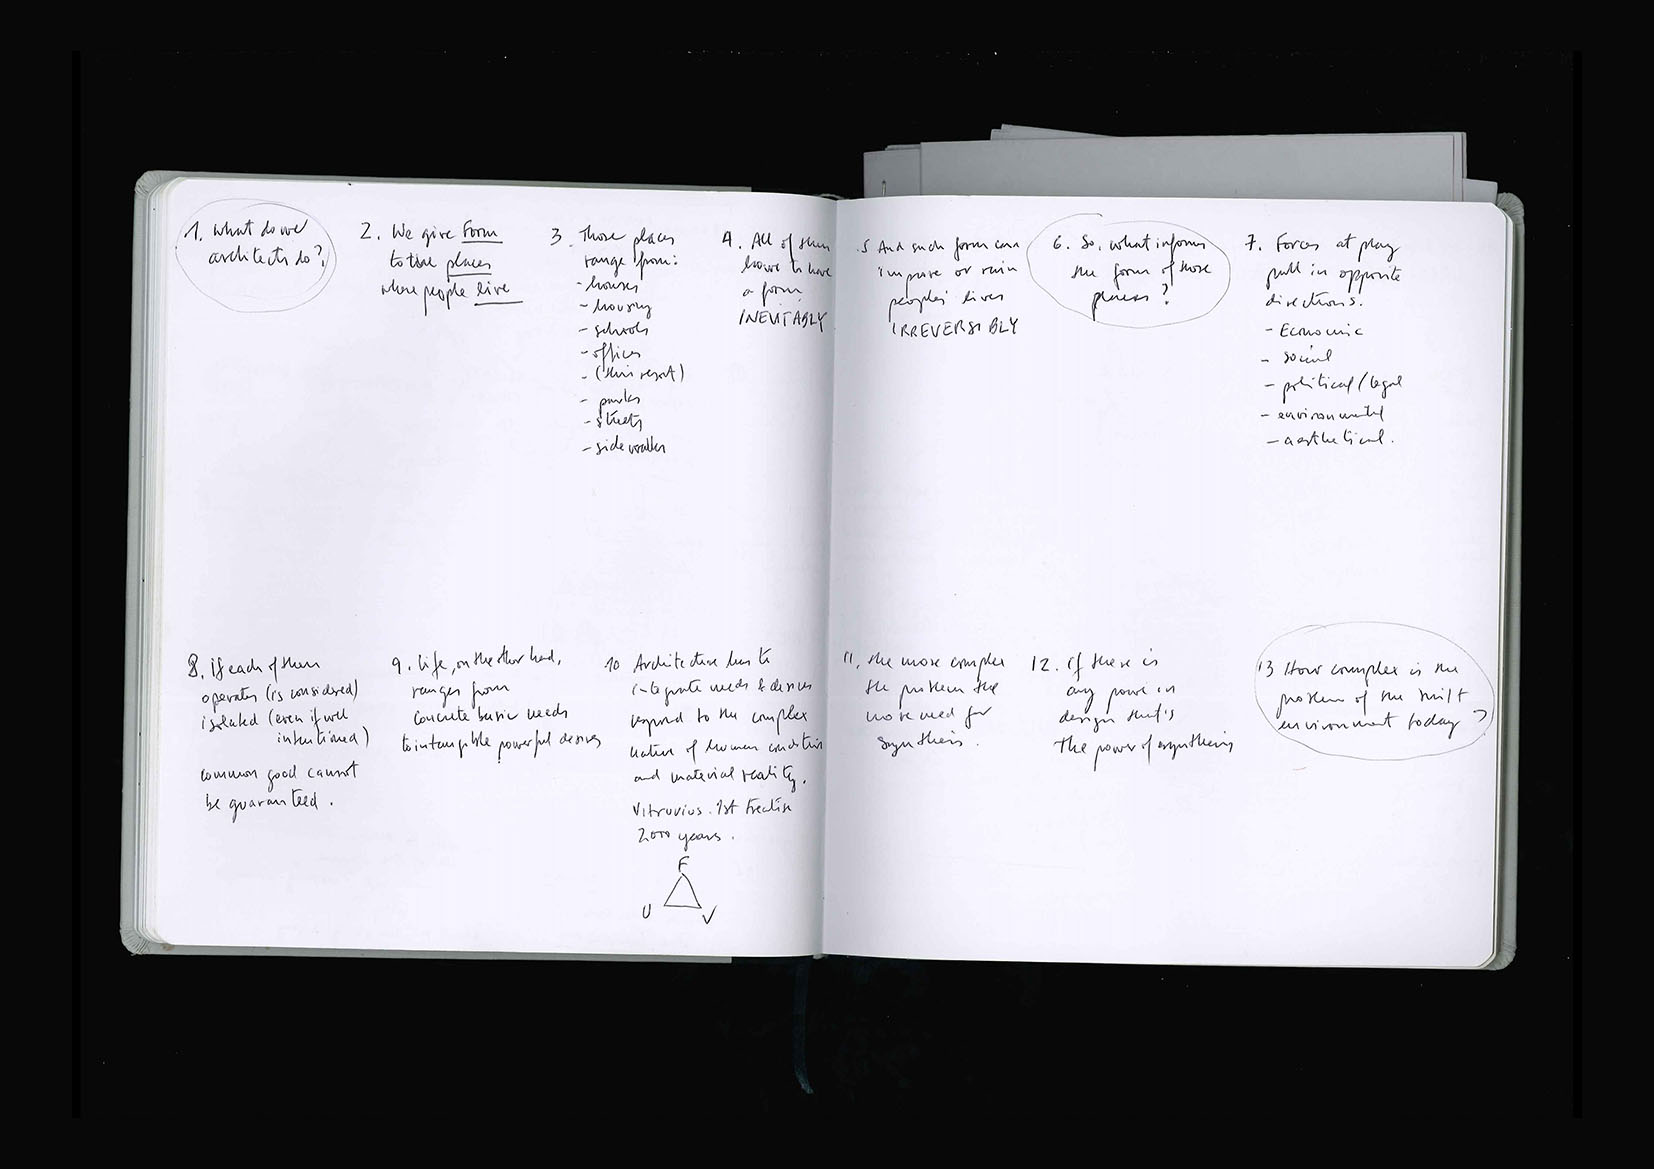 1. What do we
architects do?
2. We give form
to the places
where people live
3. Those places
range from:
- houses
- housing
- schools
- offices
- (this resort)
- parks
- streets
- sidewalks
4. All of them
have to have
a form
INEVITABLY
5 And such form can
improve or ruin
peoples' lives
IRREVERSIBLY
6. So, what informs
the form of those
places?
7. Forces at play
pull in opposite
directions.
- Economic
- social
- political/legal
- environmental
- aesthetical.
8. if each of them
operates (is considered)
isolated (even if well
intentioned)
common good cannot
be guaranteed.
9. Life, on the other hand,
ranges from
concrete basic needs
to intangible powerful desires
10 Architecture has to
integrate needs & desires
respond to the complex
nature of human condition
and material reality.
Vitruvius. 1st treatise
2000 years.
F
U V
11. the more complex
the problem the
more need for
synthesis.
12. if there is
any power in
design that's
the power of synthesis
13 How complex is the
problem of the built
environment today?